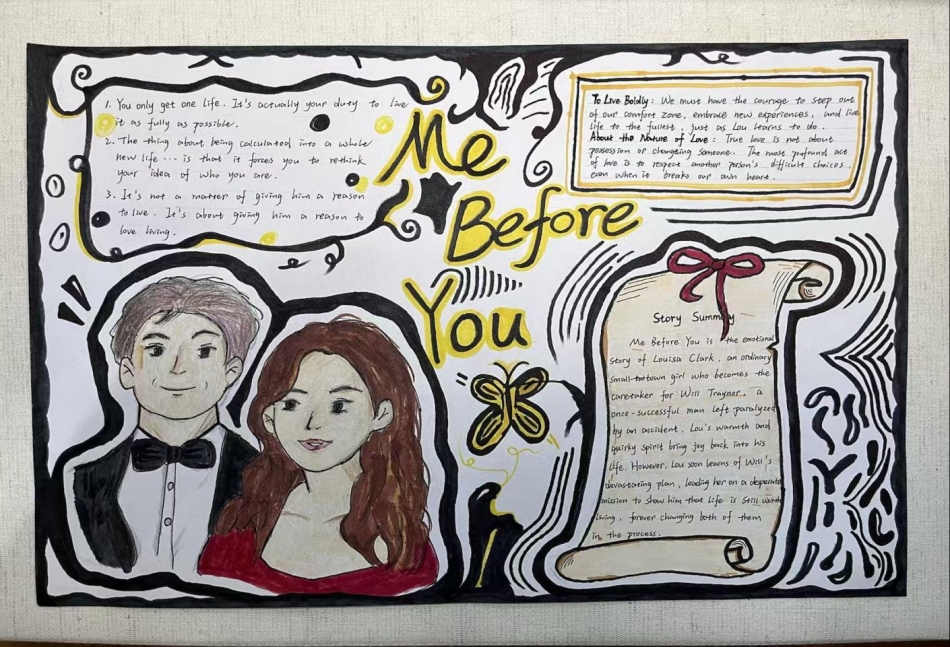 1. You only get one life. It's actually your duty to live
it as fully as possible.
2. The thing about being calculated into a whole
new life ... is that it forces you to re-think
your idea of who you are.
3. It's not a matter of giving him a reason
to live. It's about giving him a reason to
love living.
Me
Before
You
To Live Boldly: We must have the courage to step out
of our comfort zone, embrace new experiences, and live
life to the fullest, just as Lou learns to do.
About the Nature of Love: True love is not about
possession or changing someone. The most profound act
of love is to respect another person's difficult choices,
even when it breaks our own heart.
Story Summary
Me Before You is the emotional
story of Louisa Clark, an ordinary
small-town girl who becomes the
caretaker for Will Traynor, a
once-successful man left paralyzed
by an accident. Lou's warmth and
quirky spirit bring joy back into his
life. However, Lou soon learns of Will's
devastating plan, leading her on a desperate
mission to show him that life is still worth
living, forever changing both of them
in the process.